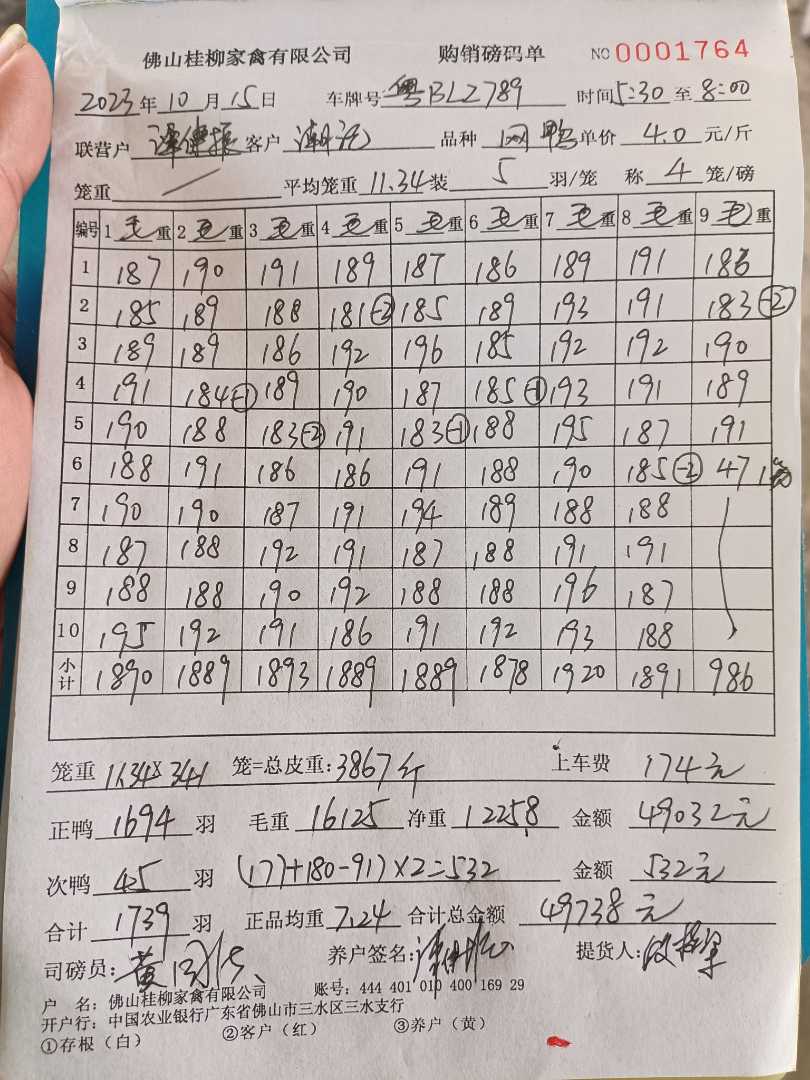 佛山桂柳家禽有限公司 购销磅码单 NO 0001764
2023年10月15日 车牌号 粤BLZ789 时间5:30至8:00
联营户 客户 品种 单价 4.0 元/斤
笼重 / 平均笼重 11.34 装 5 羽/笼 称 4 笼/磅
编号 1毛重 2毛重 3毛重 4毛重 5毛重 6毛重 7毛重 8毛重 9毛重
1 187 190 191 189 187 186 189 191 186
2 185 189 188 181-2 185 189 193 191 183-2
3 189 189 186 192 196 185 192 192 190
4 191 184-1 189 190 187 185-1 193 191 189
5 190 188 183-2 191 183-1 188 195 187 191
6 188 191 186 186 191 188 190 185-2 47 1笼
7 190 190 187 191 194 189 188 188
8 187 188 192 191 187 188 191 191
9 188 188 190 192 188 188 196 187
10 195 192 191 186 191 192 193 188
小计 1890 1889 1893 1889 1889 1878 1920 1891 986
笼重 11.34×341 笼=总皮重:3867斤 上车费 174元
正鸭 1694 羽 毛重 16125 净重 12258 金额 49032元
次鸭 45 羽 (177+180-91)×2=532 金额 532元
合计 1739 羽 正品均重 7.24 合计总金额 49738元
司磅员: 养户签名: 提货人:
户 名:佛山桂柳家禽有限公司 账号:444 401 010 400 169 29
开户行:中国农业银行广东省佛山市三水区三水支行
①存根(白) ②客户(红) ③养户(黄)